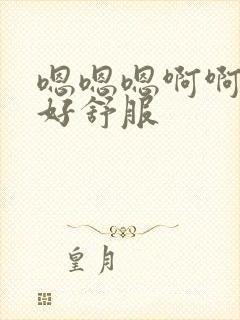 嗯嗯嗯啊啊
好舒服
皇月